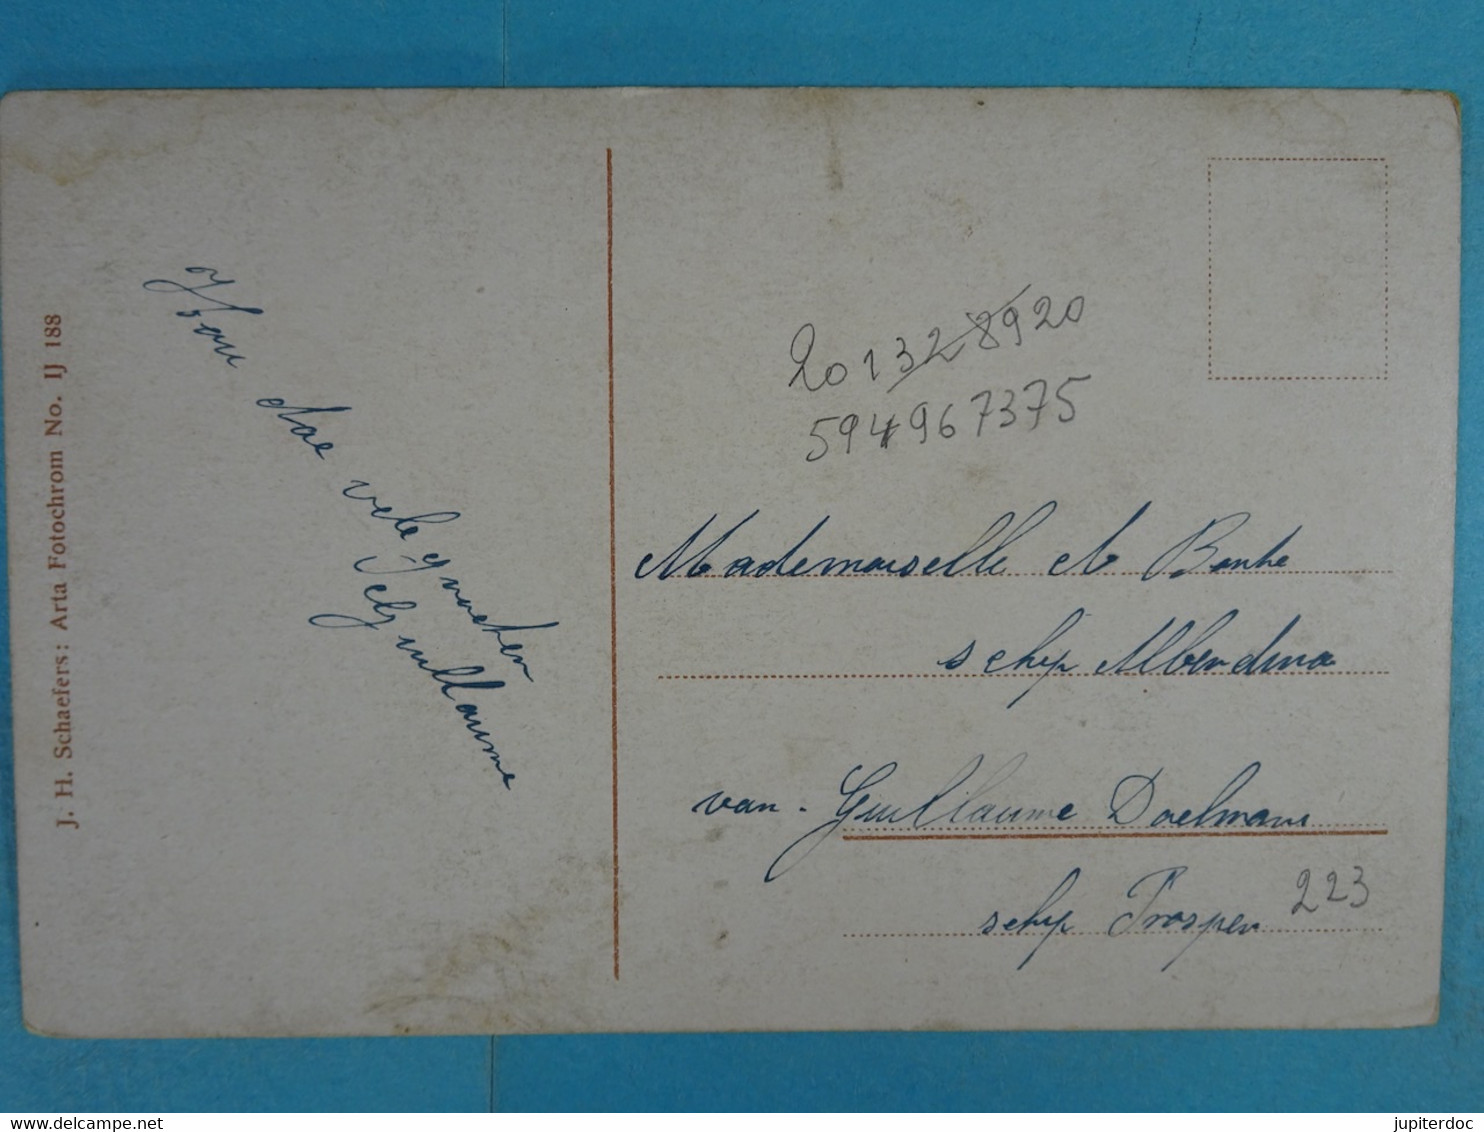 J. H. Schaefers: Arta Fotochrom No. IJ 188
vele groeten
Guillaume
201328920
594967375
Mademoiselle
schip Albendina
van. Guillaume Daelmans
schip Prosper 223
jupiterdoc